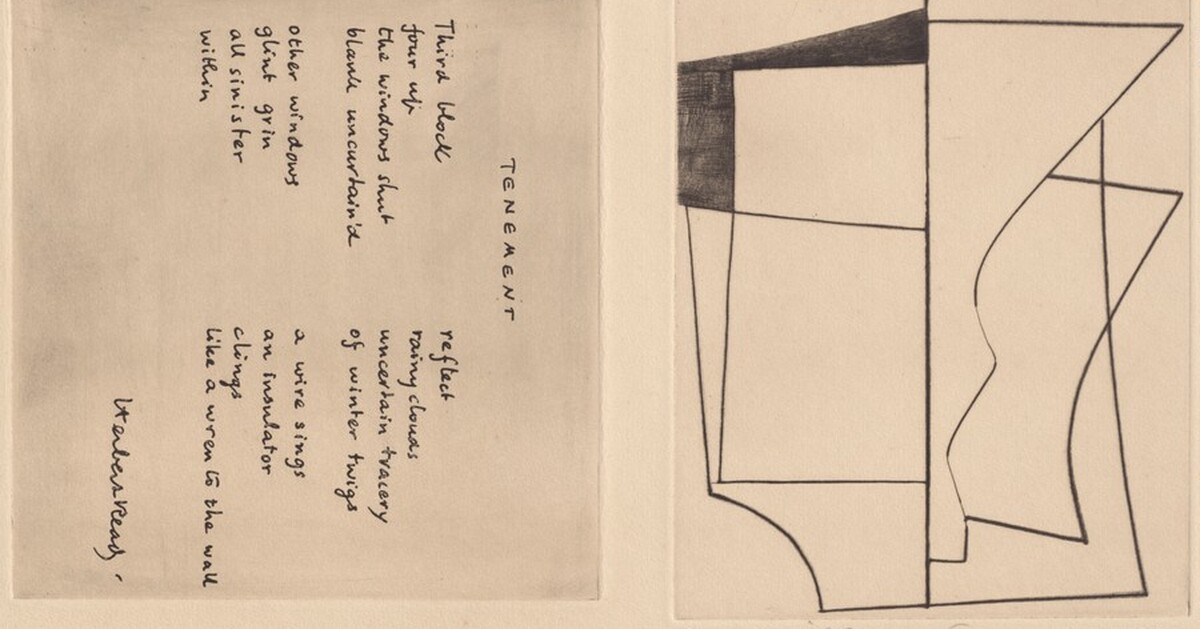 TENEMENT
Third block
four up
the windows shut
blank uncurtain'd
other windows
glint grin
all sinister
within
reflect
rainy clouds
uncertain tracery
of winter twigs
a wire sings
an insulator
clings
like a wren to the wall
Herbert Read.